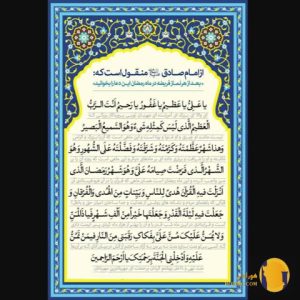 از امام صادق علیه‌السلام منقول است که:
«بعد از هر نماز فریضه در ماه رمضان این دعا را بخوانید»
یا عَلِیُّ یا عَظیمُ یا غَفُورُ یا رَحیمُ اَنْتَ الرَّبُّ
الْعَظیمُ الَّذی لَیْسَ کَمِثْلِهِ شَیءٌ وَهُوَ السَّمیعُ الْبَصیرُ
وَهذا شَهْرٌ عَظَّمْتَهُ وَکَرَّمْتَهُ وَشَرَّفْتَهُ وَفَضَّلْتَهُ عَلَی الشُّهُورِ وَهُوَ
الشَّهْرُ الَّذی فَرَضْتَ صِیامَهُ عَلَیَّ وَهُوَ شَهْرُ رَمَضانَ الَّذی
اَنْزَلْتَ فیهِ الْقُرْآنَ هُدیً لِلنّاسِ وَبَیِّناتٍ مِنَ الْهُدی وَالْفُرْقانِ وَ
جَعَلْتَ فیهِ لَیْلَةَ الْقَدْرِ وَجَعَلْتَها خَیْراً مِنْ اَلْفِ شَهْرٍ فَیا ذَا الْمَنِّ
وَلا یُمَنُّ عَلَیْکَ مُنَّ عَلَیَّ بِفَکاکِ رَقَبَتی مِنَ النّارِ فیمَنْ تَمُنُّ
عَلَیْهِ وَاَدْخِلْنِی الْجَنَّةَ بِرَحْمَتِکَ یا اَرْحَمَ الرّاحِمینَ